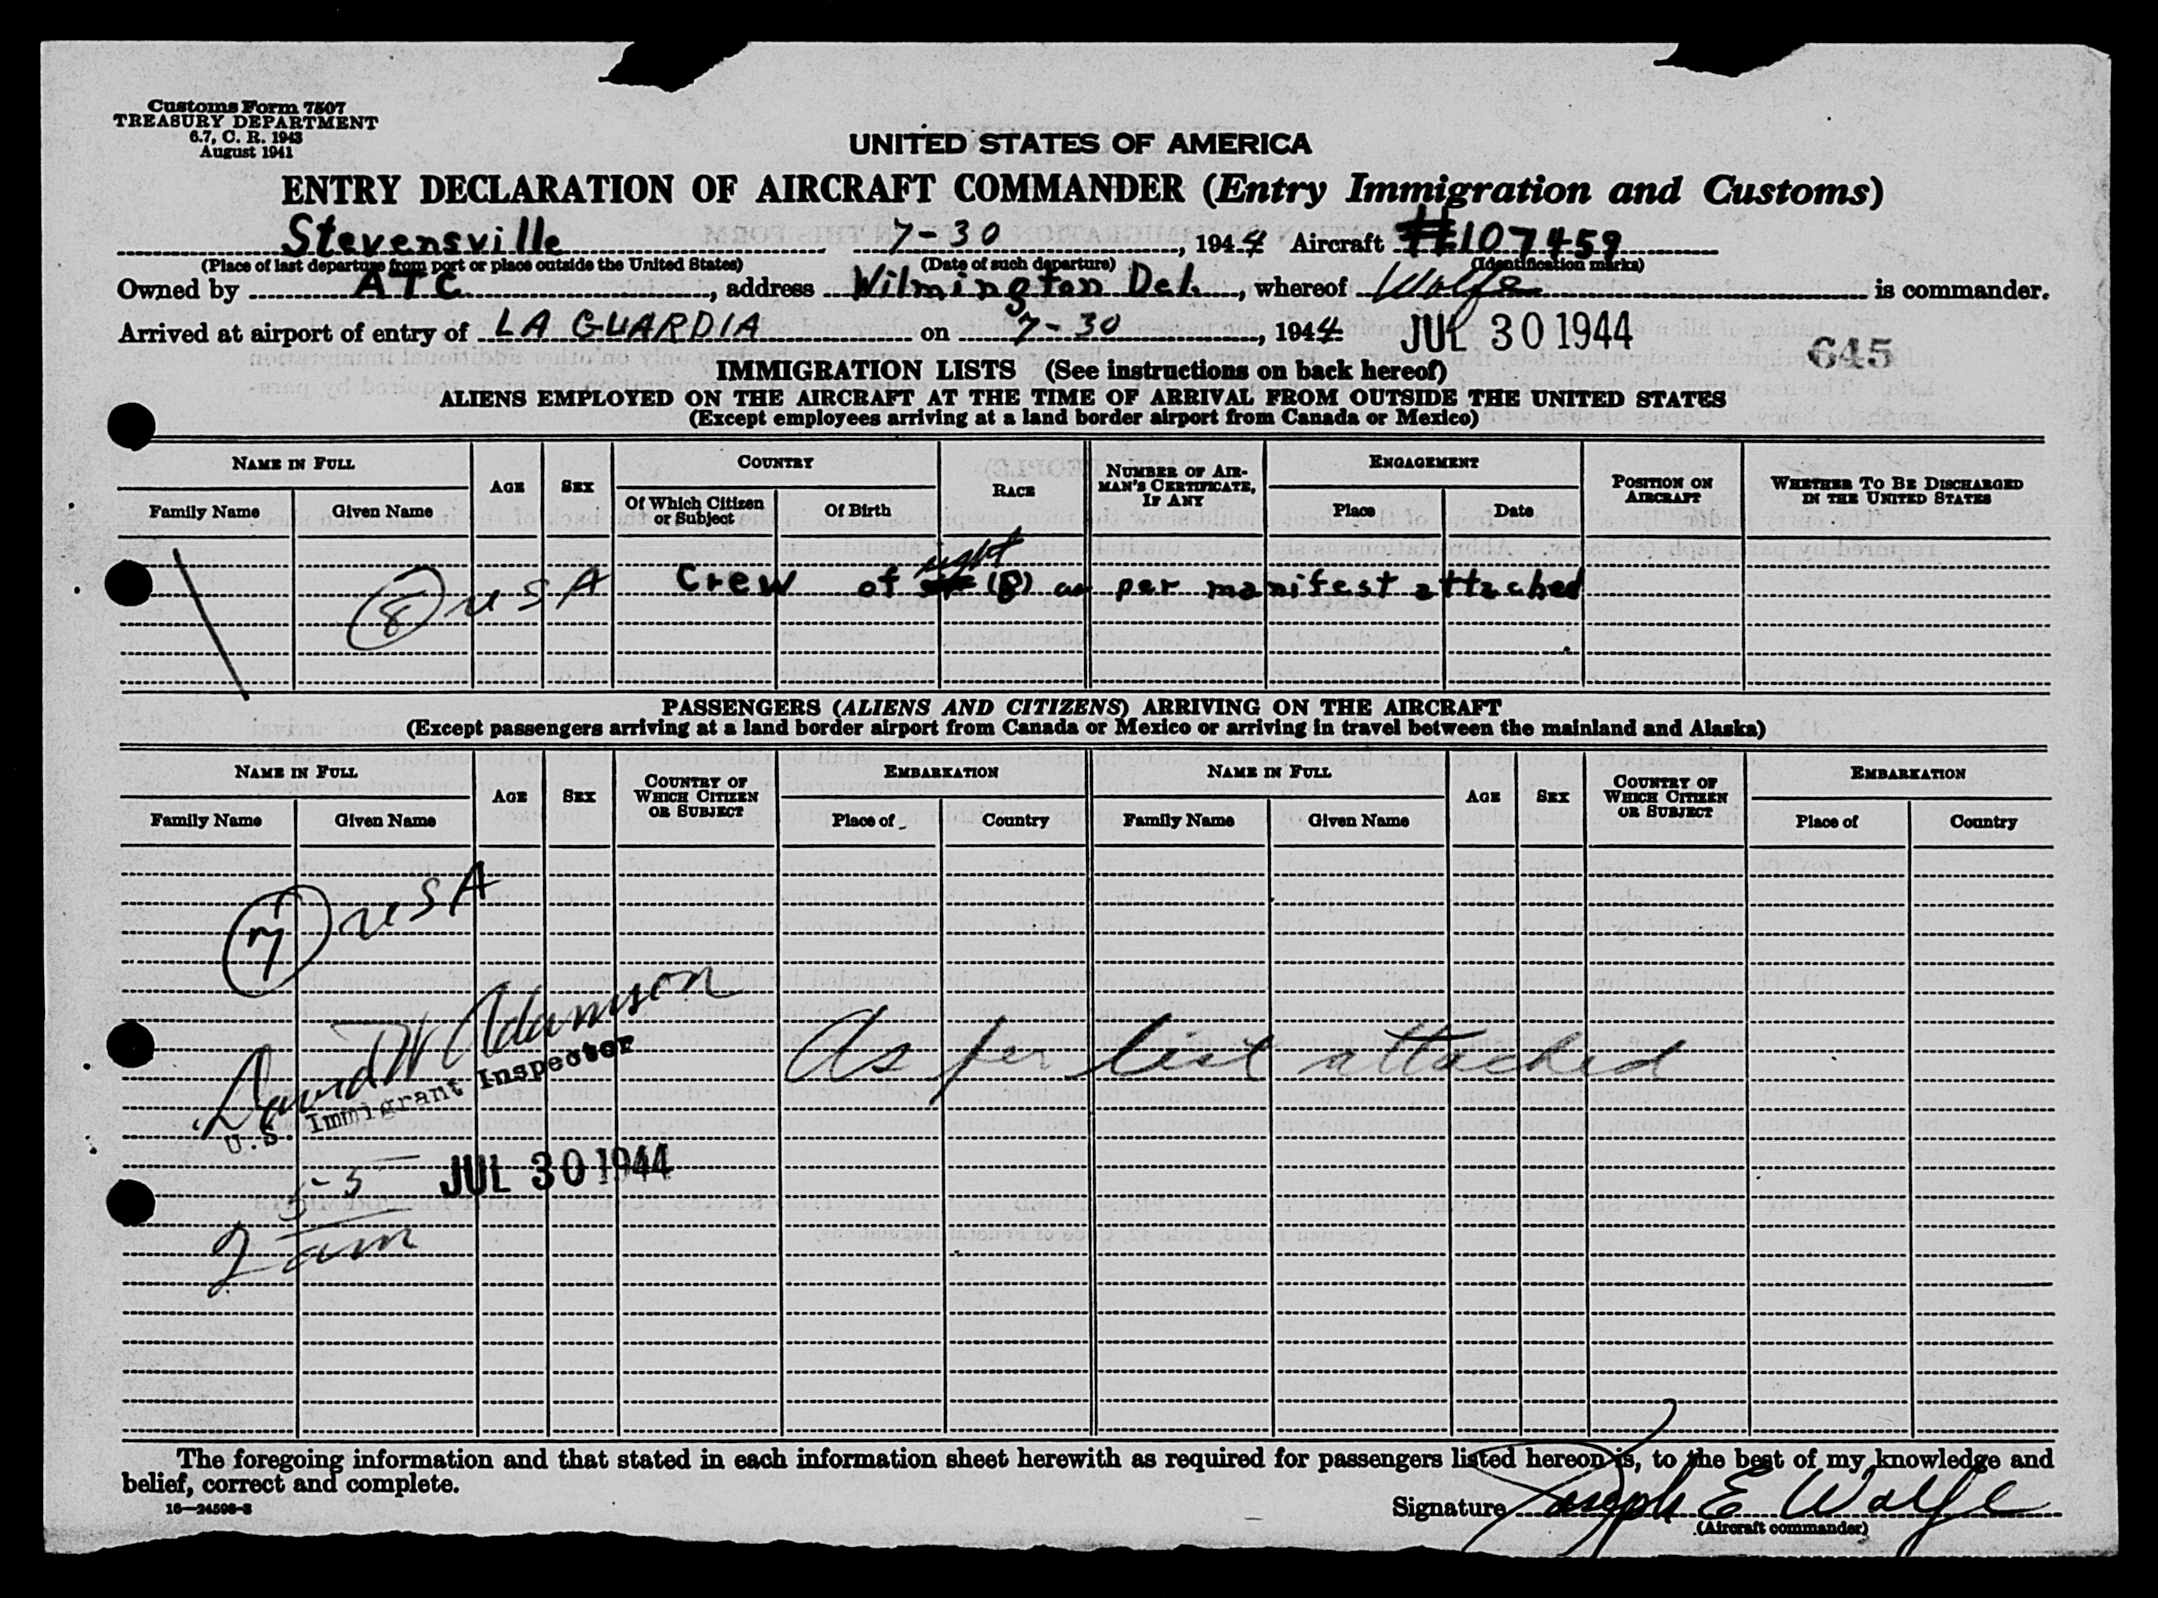 Customs Form 7507
TREASURY DEPARTMENT
6.7, C. R. 1943
August 1941
UNITED STATES OF AMERICA
ENTRY DECLARATION OF AIRCRAFT COMMANDER (Entry Immigration and Customs)
Stevensville 7-30, 1944 Aircraft #107459
(Place of last departure from port or place outside the United States) (Date of such departure) (Identification marks)
Owned by ATC, address Wilmington Del., whereof Wolfe is commander.
Arrived at airport of entry of LA GUARDIA on 7-30, 1944 JUL 30 1944
645
IMMIGRATION LISTS (See instructions on back hereof)
ALIENS EMPLOYED ON THE AIRCRAFT AT THE TIME OF ARRIVAL FROM OUTSIDE THE UNITED STATES
(Except employees arriving at a land border airport from Canada or Mexico)
NAME IN FULL AGE SEX COUNTRY RACE NUMBER OF AIRMAN'S CERTIFICATE, IF ANY ENGAGEMENT POSITION ON AIRCRAFT WHETHER TO BE DISCHARGED IN THE UNITED STATES
Family Name Given Name Of Which Citizen or Subject Of Birth Place Date
8 USA Crew of eight (8) as per manifest attached
PASSENGERS (ALIENS AND CITIZENS) ARRIVING ON THE AIRCRAFT
(Except passengers arriving at a land border airport from Canada or Mexico or arriving in travel between the mainland and Alaska)
NAME IN FULL AGE SEX COUNTRY OF WHICH CITIZEN OR SUBJECT EMBARKATION NAME IN FULL AGE SEX COUNTRY OF WHICH CITIZEN OR SUBJECT EMBARKATION
Family Name Given Name Place of Country Family Name Given Name Place of Country
7 USA
David W Adamson
U.S. Immigrant Inspector
As per list attached
JUL 30 1944
am
The foregoing information and that stated in each information sheet herewith as required for passengers listed hereon is, to the best of my knowledge and
belief, correct and complete.
16—24598-3
Signature Joseph E Wolfe
(Aircraft commander)